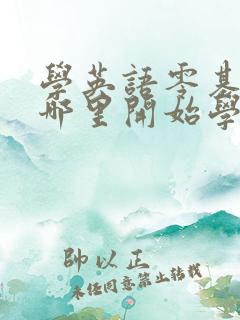 學英語零基
哪里開始學
帥以正
未经同意禁止转载